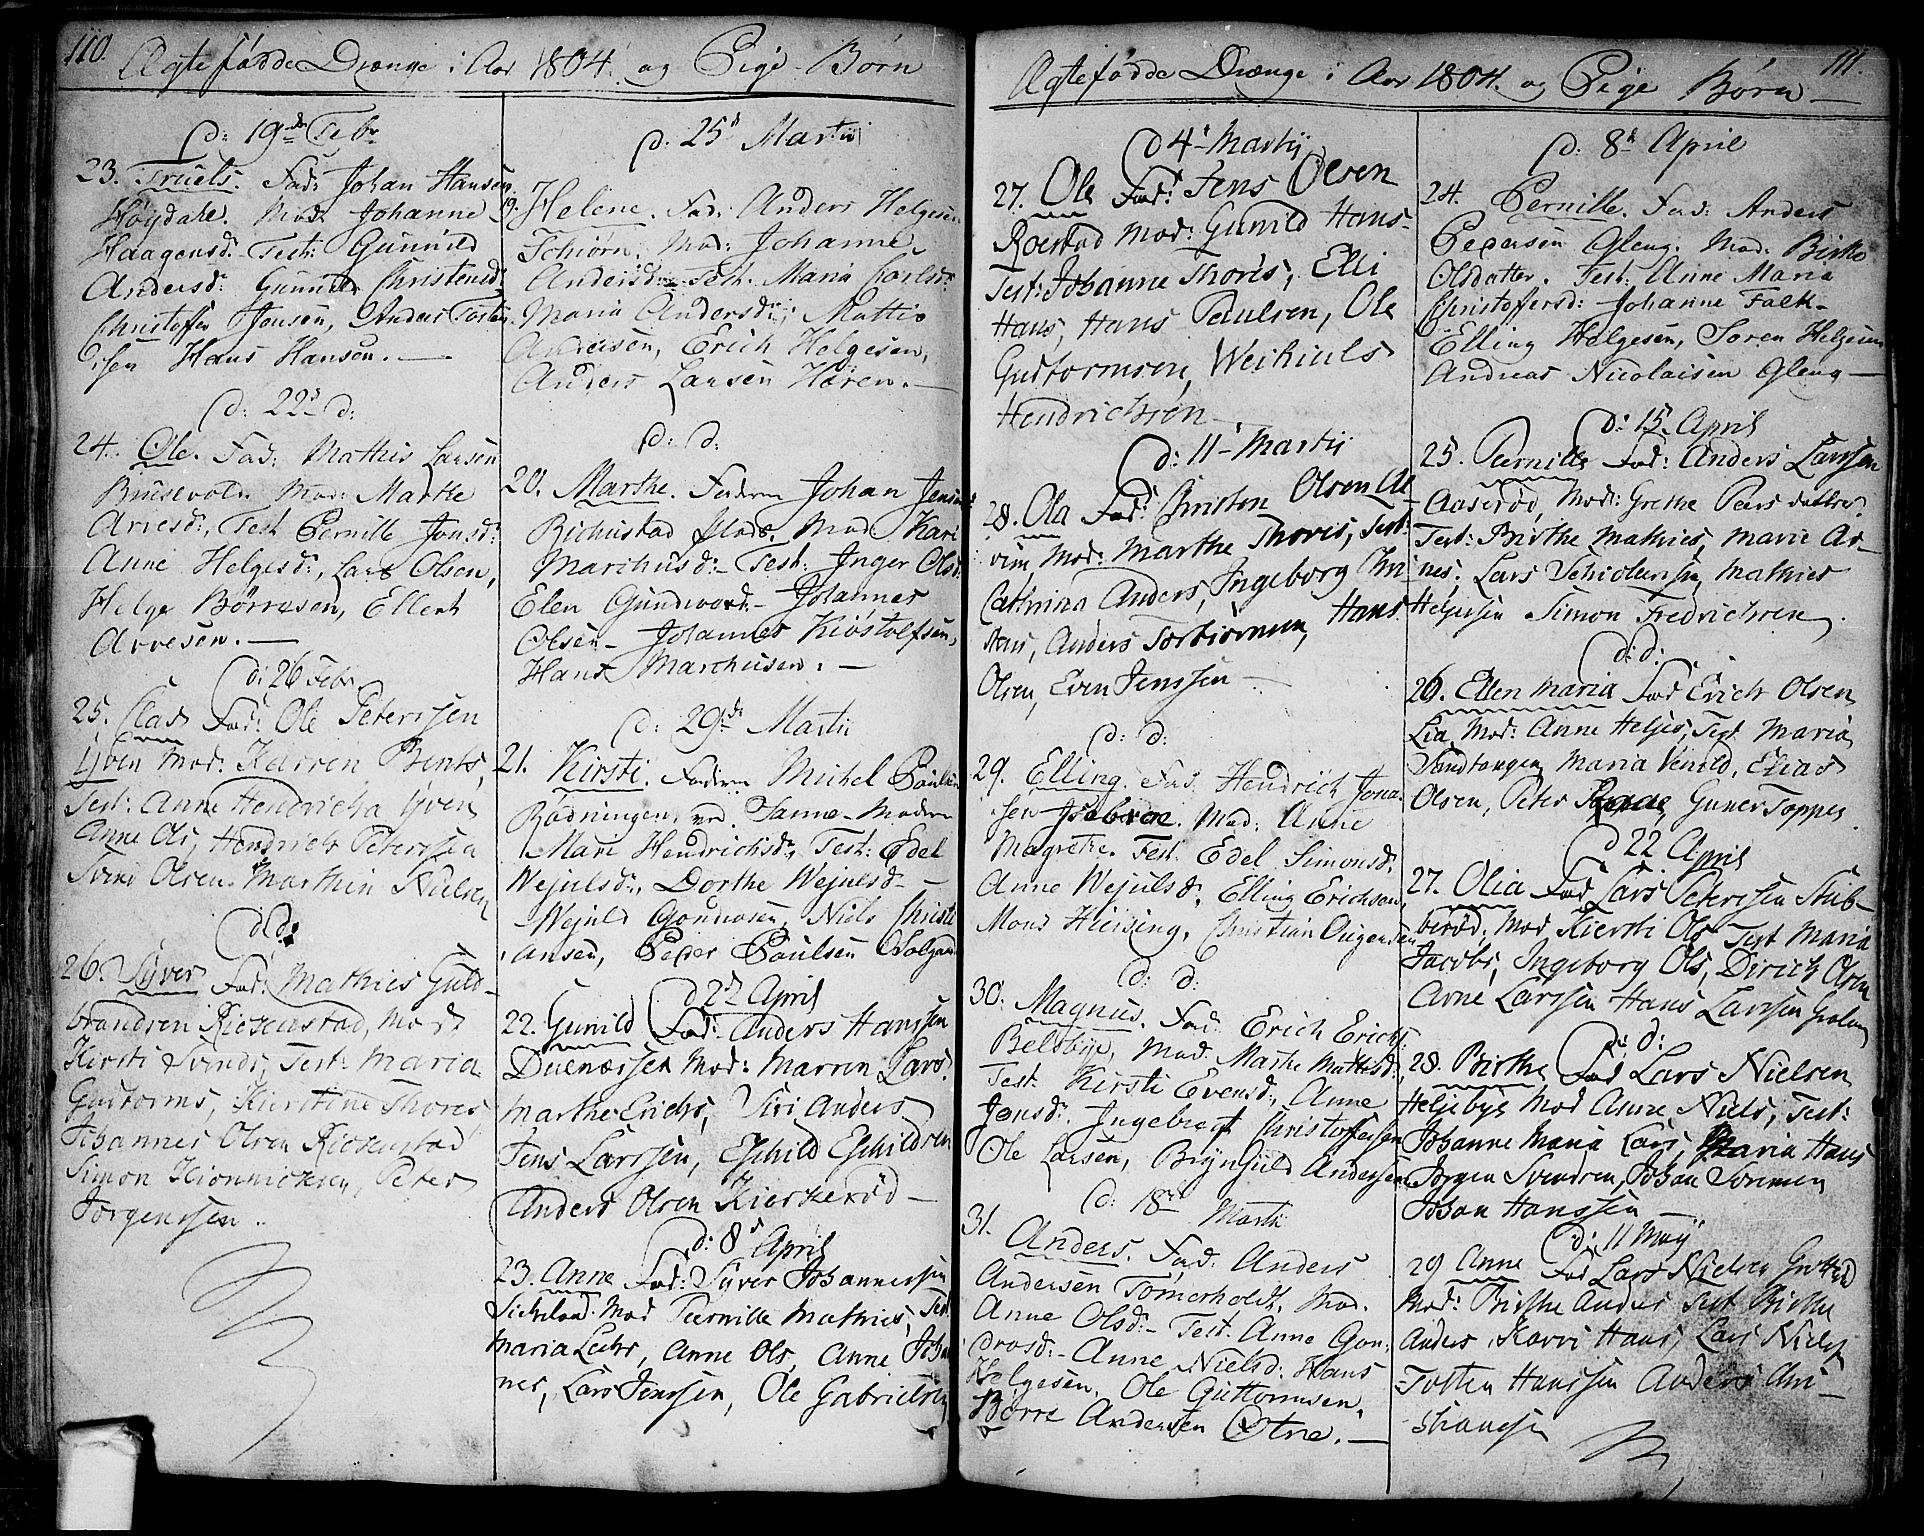 110.
Ægte fødde Drænge i Aar 1804. og Pige-Børn
d: 19de Febr
23. Truels. Fad: Johan Hansen
Høgdahl. Mod: Johanne
Haagensd: Test: Gunnild
Andersd: Gunnild Christensd:
Christoffer Jensen, Anders Torsten
Hans Hansen. —
d: 22d d:
24. Ole. Fad: Mathis Larsen
Mod: Marthe
Arvesd:, Test Pernille Jonsd:
Anne Helgesd:, Lars Olsen,
Helge Børresen, Ellert
Arvesen. —
d: 26 Febr
25. Clas Fad: Ole Peterssen
Yven Mod: Karren Bents,
Test: Anne Hendrichs Yven
Anne Ols, Hendrich Peterssen
Svend Olsen. Marthin Nielsen
d: d:
26. Syver Fad: Mathies Guld-
brandsen Mod:
Kirsti Svends, Test: Maria
Guttorms, Kierstine Thores
Johannes Olsen
Simon Peter
Jørgenssen.
d: 25d Martii
19. Helene. Fad: Anders Helgesen
Schiørn. Mod: Johanne
Andersd: Test. Maria Carlsd:
Maria Andersd:, Mattis
Andersen, Erich Helgesen,
Anders Larsen Høren. —
d: d:
20. Marthe. Faderen Johan Jensen
Mod Kari
Marchusd: Test: Inger Olsd:
Elen Gundvord: Johannes
Olsen Johannes Kiøstolfsen,
Hans Marchusen. —
d: 29de Martii
21. Kirsti. Faderen Michel Poulsen
Rødningen, ved Sanne. Moderen
Mari Hendrichsd:, Test: Edel
Wejulsd:, Dorthe Wejulsd:
Wejuld Gounosen, Niels Christi-
ansen, Peder Poulsen
d 2d April
22. Gunild Fad: Anders Hanssen
Mod: Marren Lars.
Marthe Erichs, Siri Anders
Jens Larssen, Eschild Eschildsen
Anders Olsen Kierkerød —
d: 8d April
23. Anne Fad: Siver Johannessen
Mod Pernille Mathies, Test
Maria Lars, Anne Ols, Anne Johan
nes, Lars Jenssen, Ole Gabrielsen
111.
Ægte fødde Drænge i Aar 1804. og Pige Børn —
d 4d Martij
27. Ole Fad: Jens Olsen
Roestad Mod: Gunild Hans-
Test: Johanne Thoris, Elli
Hans, Hans Paulsen, Ole
Guttormsen, Weihiuls
Hendrichsen —
d: 11d Martij
28. Ola Fad: Christen Olsen Al
vim Mod: Marthe Thoris, Test:
Cathrina Anders, Ingeborg Chri
stens, Anders Torbiørnsen, Hans
Olsen, Even Jenssen —
d: d:
29. Elling. Fad: Hendrich Jona
sen Mod: Anne
Magrethe. Test: Edel Simonsd:
Anne Wejulsd:, Elling Erichsen,
Mons Hieising, Christian
d: d:
30. Magnus. Fad: Erich Erichs:
Belsbye, Mod. Marthe Mathisd:,
Test Kirsti Evensd:, Anne
Jensd:, Ingebregt Christoffersen
Ole Larsen, Brynhild Andersen
d: 18de Martii
31. Anders. Fad. Anders
Andersen Tomerholdt. Mod.
Anne Olsd: Test: Anne Gun-
drosd: Anne Nielsd: Hans
Helgesen. Ole Guttormsen,
Børre Andersen Otne. —
d: 8d April
24. Pernille. Fad: Anders
Pedersen Gleng. Mod: Birthe
Olsdatter. Test: Anne Maria
Christoffersd: Johanne Falk-
Elling Helgesen, Søren Helgesen
Andreas Nicolaisen Gleng —
d: 15 April
25. Pernille Fad: Anders Larssen
Aaserød, Mod: Grethe Peersdatter.
Test: Birthe Mathies, Marie Ar-
nes. Lars Mathies
Helgesen Simon Fredrichsen.
d: d:
26. Ellen Maria Fad Erich Olsen
Lia Mod: Anne Heljes, Test Maria
Sandtangen Maria Venild, Elias
Olsen, Peter Guner Toppes.
d 22 April
27. Olia Fad Lars Peterssen Stub-
berød, Mod Kiersti Ols Test Maria
Jacobs, Ingeborg Ols, Dirich Olsen
Arne Larssen Hans Larssen
d: d:
28. Birthe Fad Lars Nielsen
Heljebye Mod Anne Niels, Test:
Johanne Maria Lars, Maria Hans
Jørgen Svendsen, Johan Sørensen
Johan Hanssen —
d: 11 Maij
29 Anne Fad Lars Nielsen
Mod: Birthe Anders Test Birthe
Anders, Karri Hans, Lars Niels
Totten Hanssen Anders Chri-
stiansen